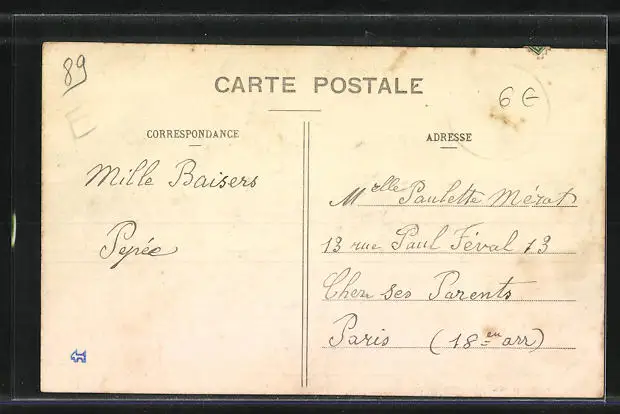 89
CARTE POSTALE
6€
E
CORRESPONDANCE
ADRESSE
Mille Baisers
Pepée
Melle Paulette Mérat
13 rue Paul Féval 13
Chez ses Parents
Paris (18=en arr)